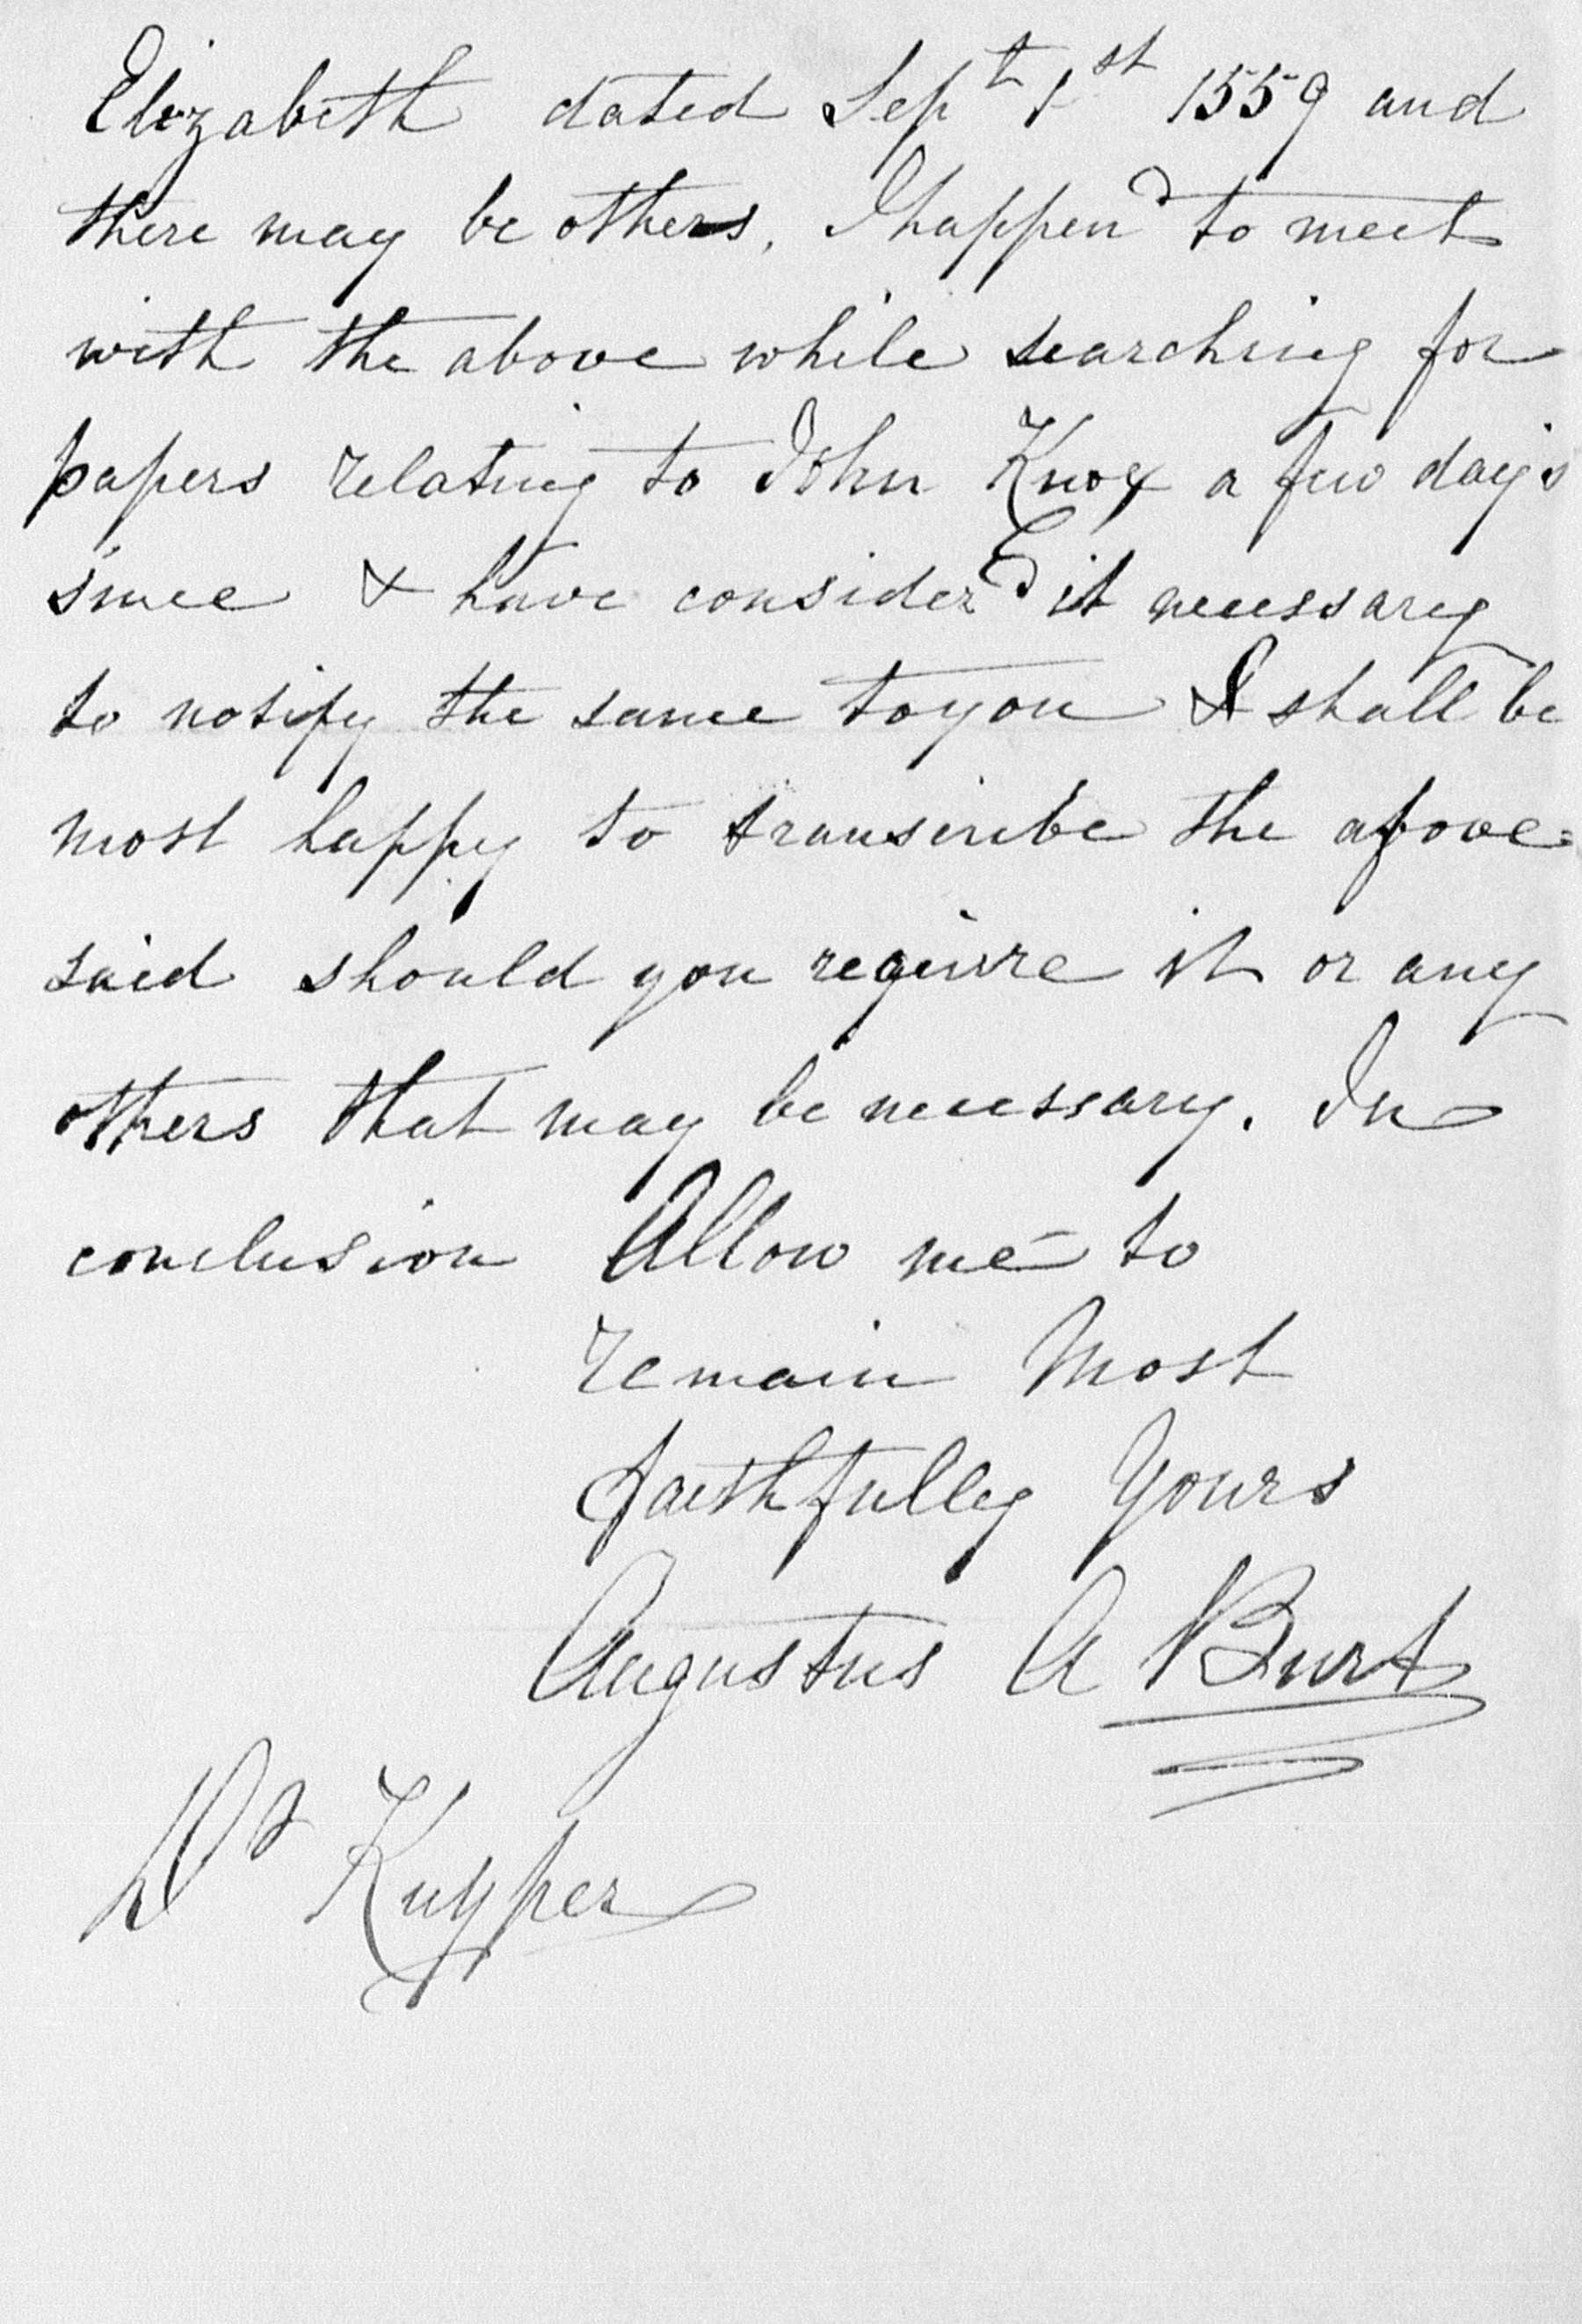 Elizabeth dated Sept 1st 1559 and
there may be others. I happend to meet
with the above while searching for
papers relating to John Knox a few days
since & have considerd it necessary
to notify the same to you I shall be
most happy to transcribe the above
said should you require it or any
others that may be necessary. In
conclusion Allow me to
remain Most
faithfully Yours
Augustus A Burt
Dr Kuyper